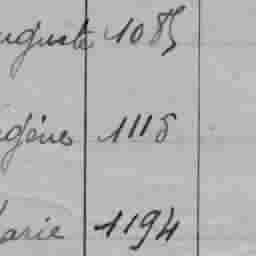 uguste 1085
ugénes 1118
Marie 1194